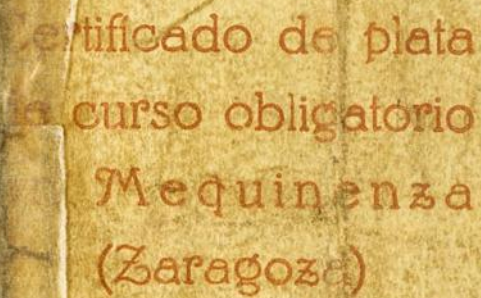 Certificado de plata
de curso obligatorio
Mequinenza
(Zaragoza)